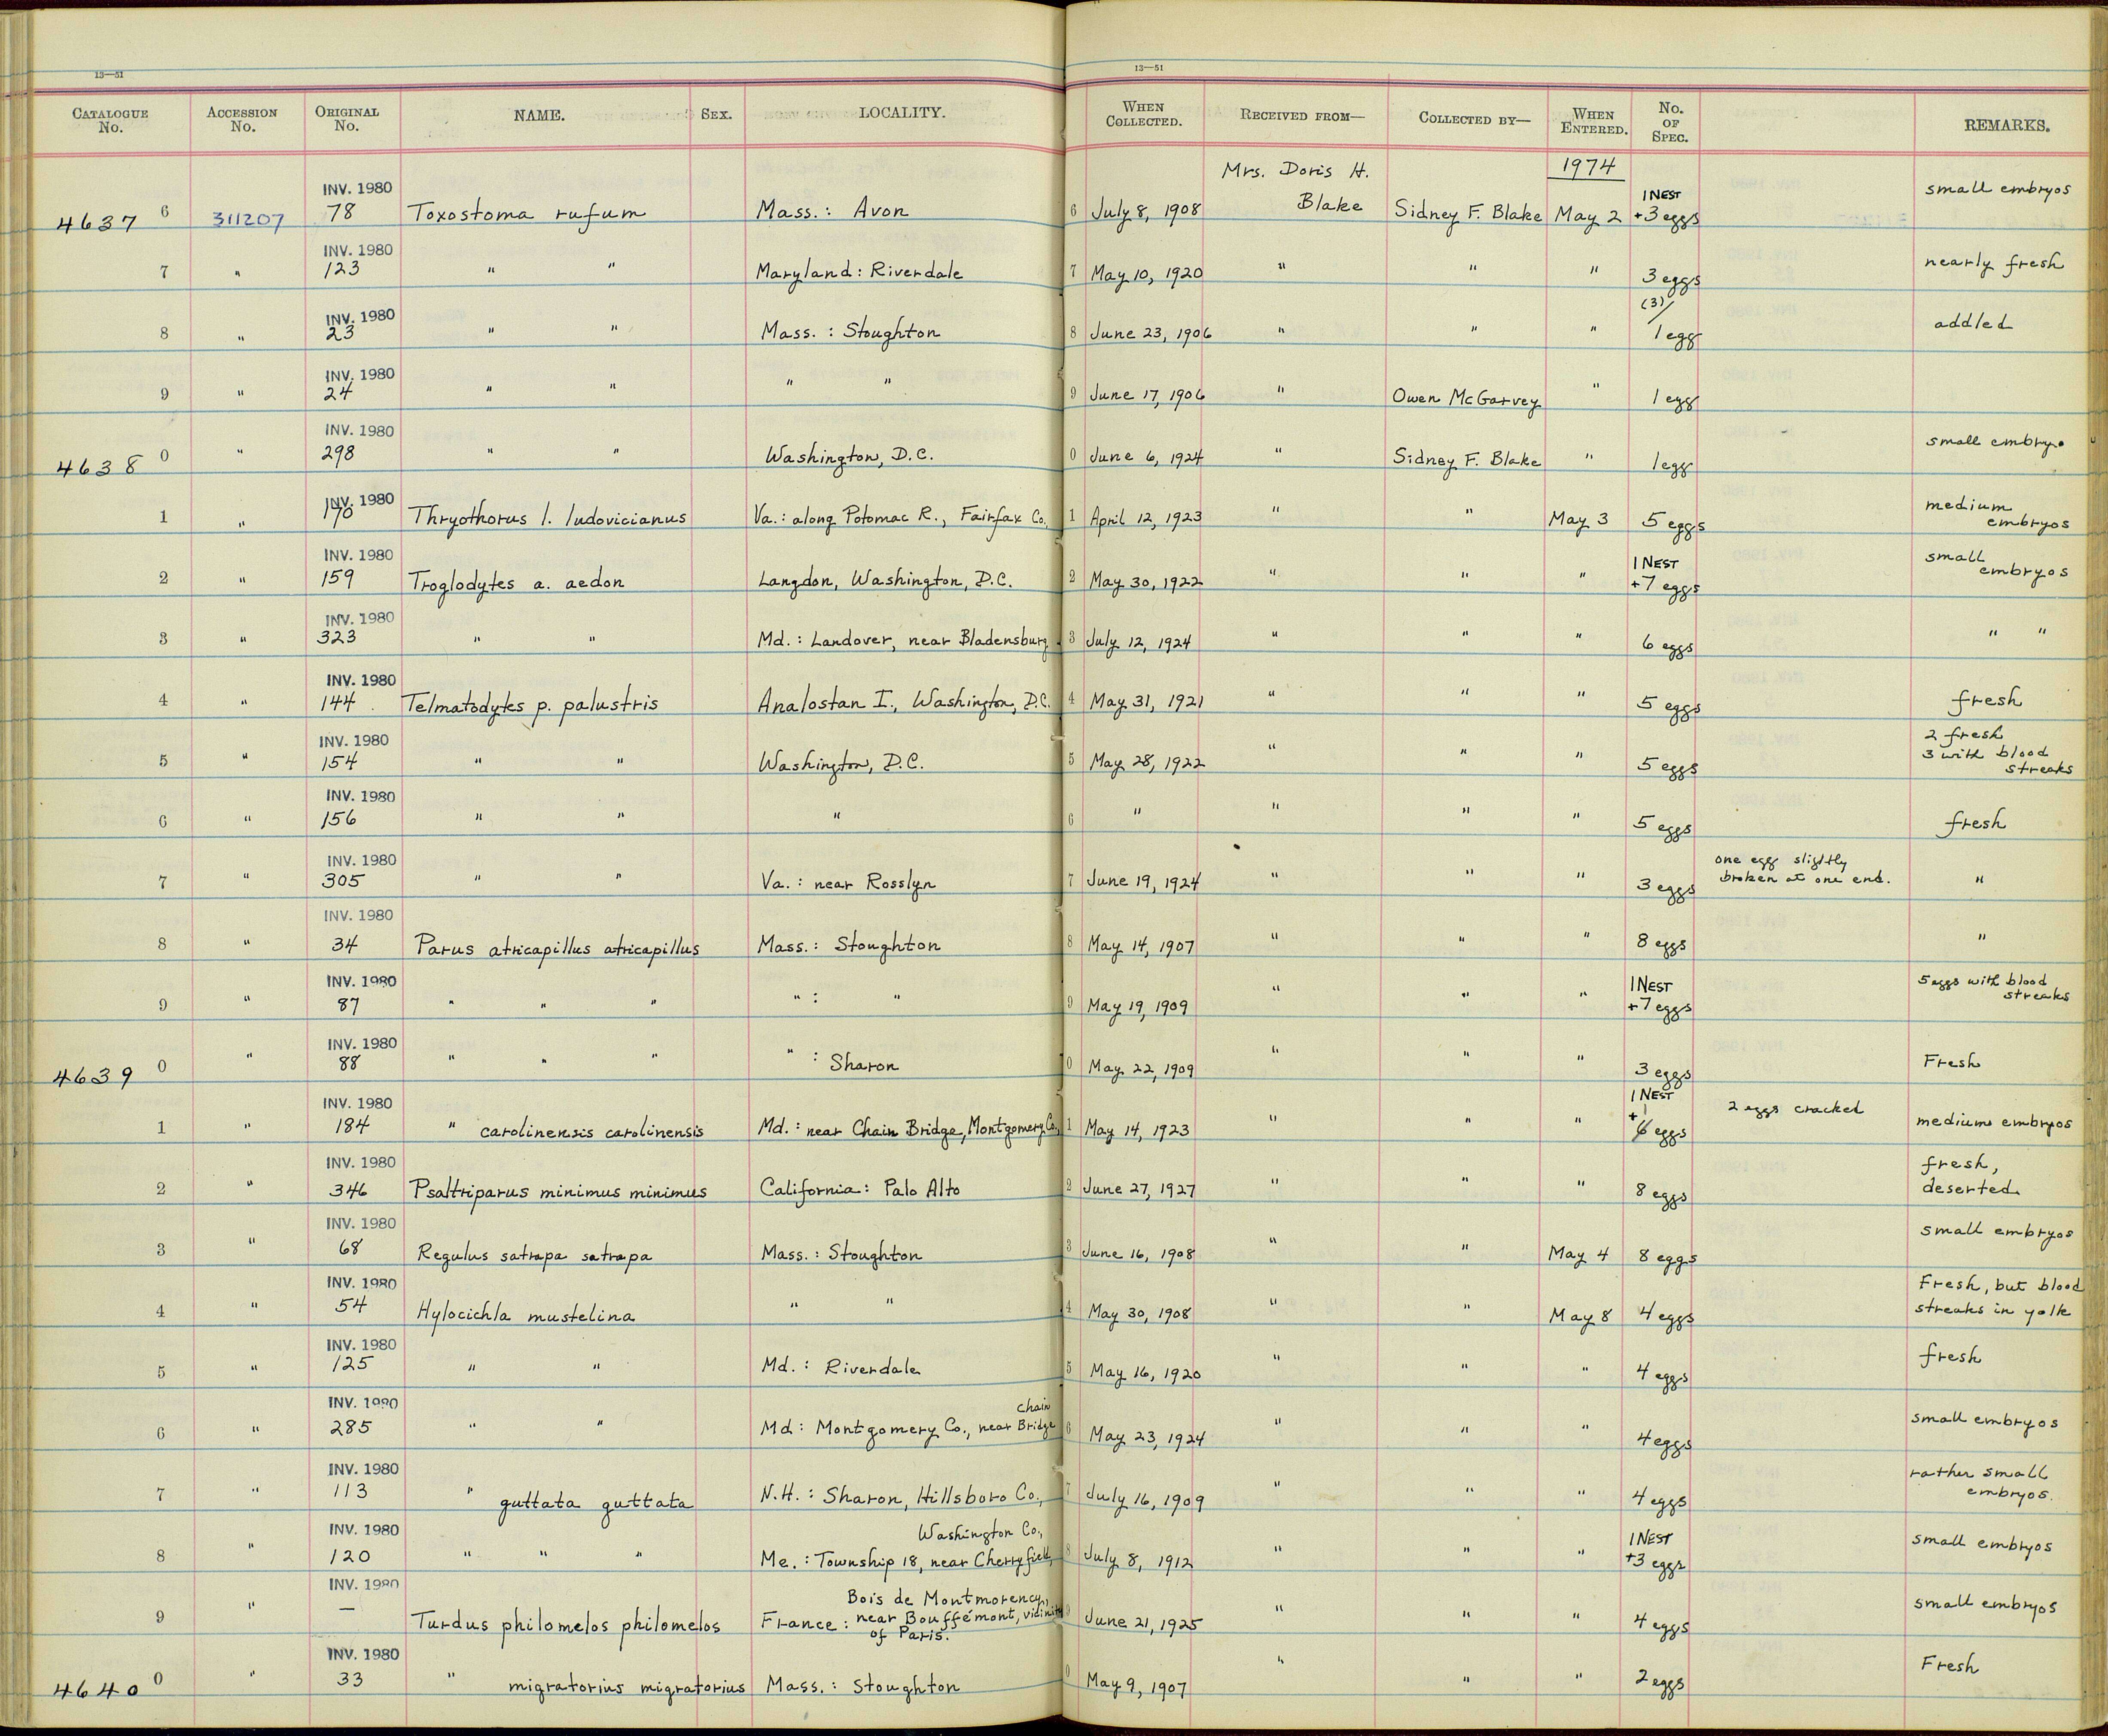 13—51 13—51
CATALOGUE No. ACCESSION No. ORIGINAL No. NAME. SEX. LOCALITY. WHEN COLLECTED. RECEIVED FROM— COLLECTED BY— WHEN ENTERED. No. OF SPEC. REMARKS.
4637 6 311207 INV. 1980 78 Toxostoma rufum Mass.: Avon 6 July 8, 1908 Mrs. Doris H. Blake Sidney F. Blake 1974 May 2 1 NEST +3 eggs small embryos
7 " INV. 1980 123 " " Maryland: Riverdale 7 May 10, 1920 " " " 3 eggs nearly fresh
8 " INV. 1980 23 " " Mass.: Stoughton 8 June 23, 1906 " " " (3)/ 1 egg addled
9 " INV. 1980 24 " " " " 9 June 17, 1906 " Owen McGarvey " 1 egg
4638 0 " INV. 1980 298 " " Washington, D.C. 0 June 6, 1924 " Sidney F. Blake " 1 egg small embryo
1 " INV. 1980 170 Thryothorus l. ludovicianus Va.: along Potomac R., Fairfax Co. 1 April 12, 1923 " " May 3 5 eggs medium embryos
2 " INV. 1980 159 Troglodytes a. aedon Langdon, Washington, D.C. 2 May 30, 1922 " " " 1 NEST +7 eggs small embryos
3 " INV. 1980 323 " " Md.: Landover, near Bladensburg 3 July 12, 1924 " " " 6 eggs " "
4 " INV. 1980 144 Telmatodytes p. palustris Analostan I., Washington, D.C. 4 May 31, 1921 " " " 5 eggs fresh
5 " INV. 1980 154 " " Washington, D.C. 5 May 28, 1922 " " " 5 eggs 2 fresh 3 with blood streaks
6 " INV. 1980 156 " " " 6 " " " " 5 eggs fresh
7 " INV. 1980 305 " " Va.: near Rosslyn 7 June 19, 1924 " " " 3 eggs one egg slightly broken at one end. "
8 " INV. 1980 34 Parus atricapillus atricapillus Mass.: Stoughton 8 May 14, 1907 " " " 8 eggs "
9 " INV. 1980 87 " " " " : " 9 May 19, 1909 " " " 1 NEST +7 eggs 5 eggs with blood streaks
4639 0 " INV. 1980 88 " " " " : Sharon 0 May 22, 1909 " " " 3 eggs Fresh
1 " INV. 1980 184 " carolinensis carolinensis Md.: near Chain Bridge, Montgomery Co., 1 May 14, 1923 " " " 1 NEST + 6 eggs 2 eggs cracked medium embryos
2 " INV. 1980 346 Psaltriparus minimus minimus California: Palo Alto 2 June 27, 1927 " " " 8 eggs fresh, deserted
3 " INV. 1980 68 Regulus satrapa satrapa Mass.: Stoughton 3 June 16, 1908 " " May 4 8 eggs small embryos
4 " INV. 1980 54 Hylocichla mustelina " " 4 May 30, 1908 " " May 8 4 eggs Fresh, but blood streaks in yolk
5 " INV. 1980 125 " " Md.: Riverdale 5 May 16, 1920 " " " 4 eggs fresh
6 " INV. 1980 285 " " Md: Montgomery Co., near Chain Bridge 6 May 23, 1924 " " " 4 eggs small embryos
7 " INV. 1980 113 " guttata guttata N.H.: Sharon, Hillsboro Co., 7 July 16, 1909 " " " 4 eggs rather small embryos.
8 " INV. 1980 120 " " " Me.: Township 18, near Cherryfield, Washington Co., 8 July 8, 1912 " " " 1 NEST +3 eggs small embryos
9 " INV. 1980 — Turdus philomelos philomelos France: Bois de Montmorency, near Bouffémont, vicinity of Paris. 9 June 21, 1925 " " " 4 eggs small embryos
4640 0 " INV. 1980 33 " migratorius migratorius Mass.: Stoughton 0 May 9, 1907 " " " 2 eggs Fresh